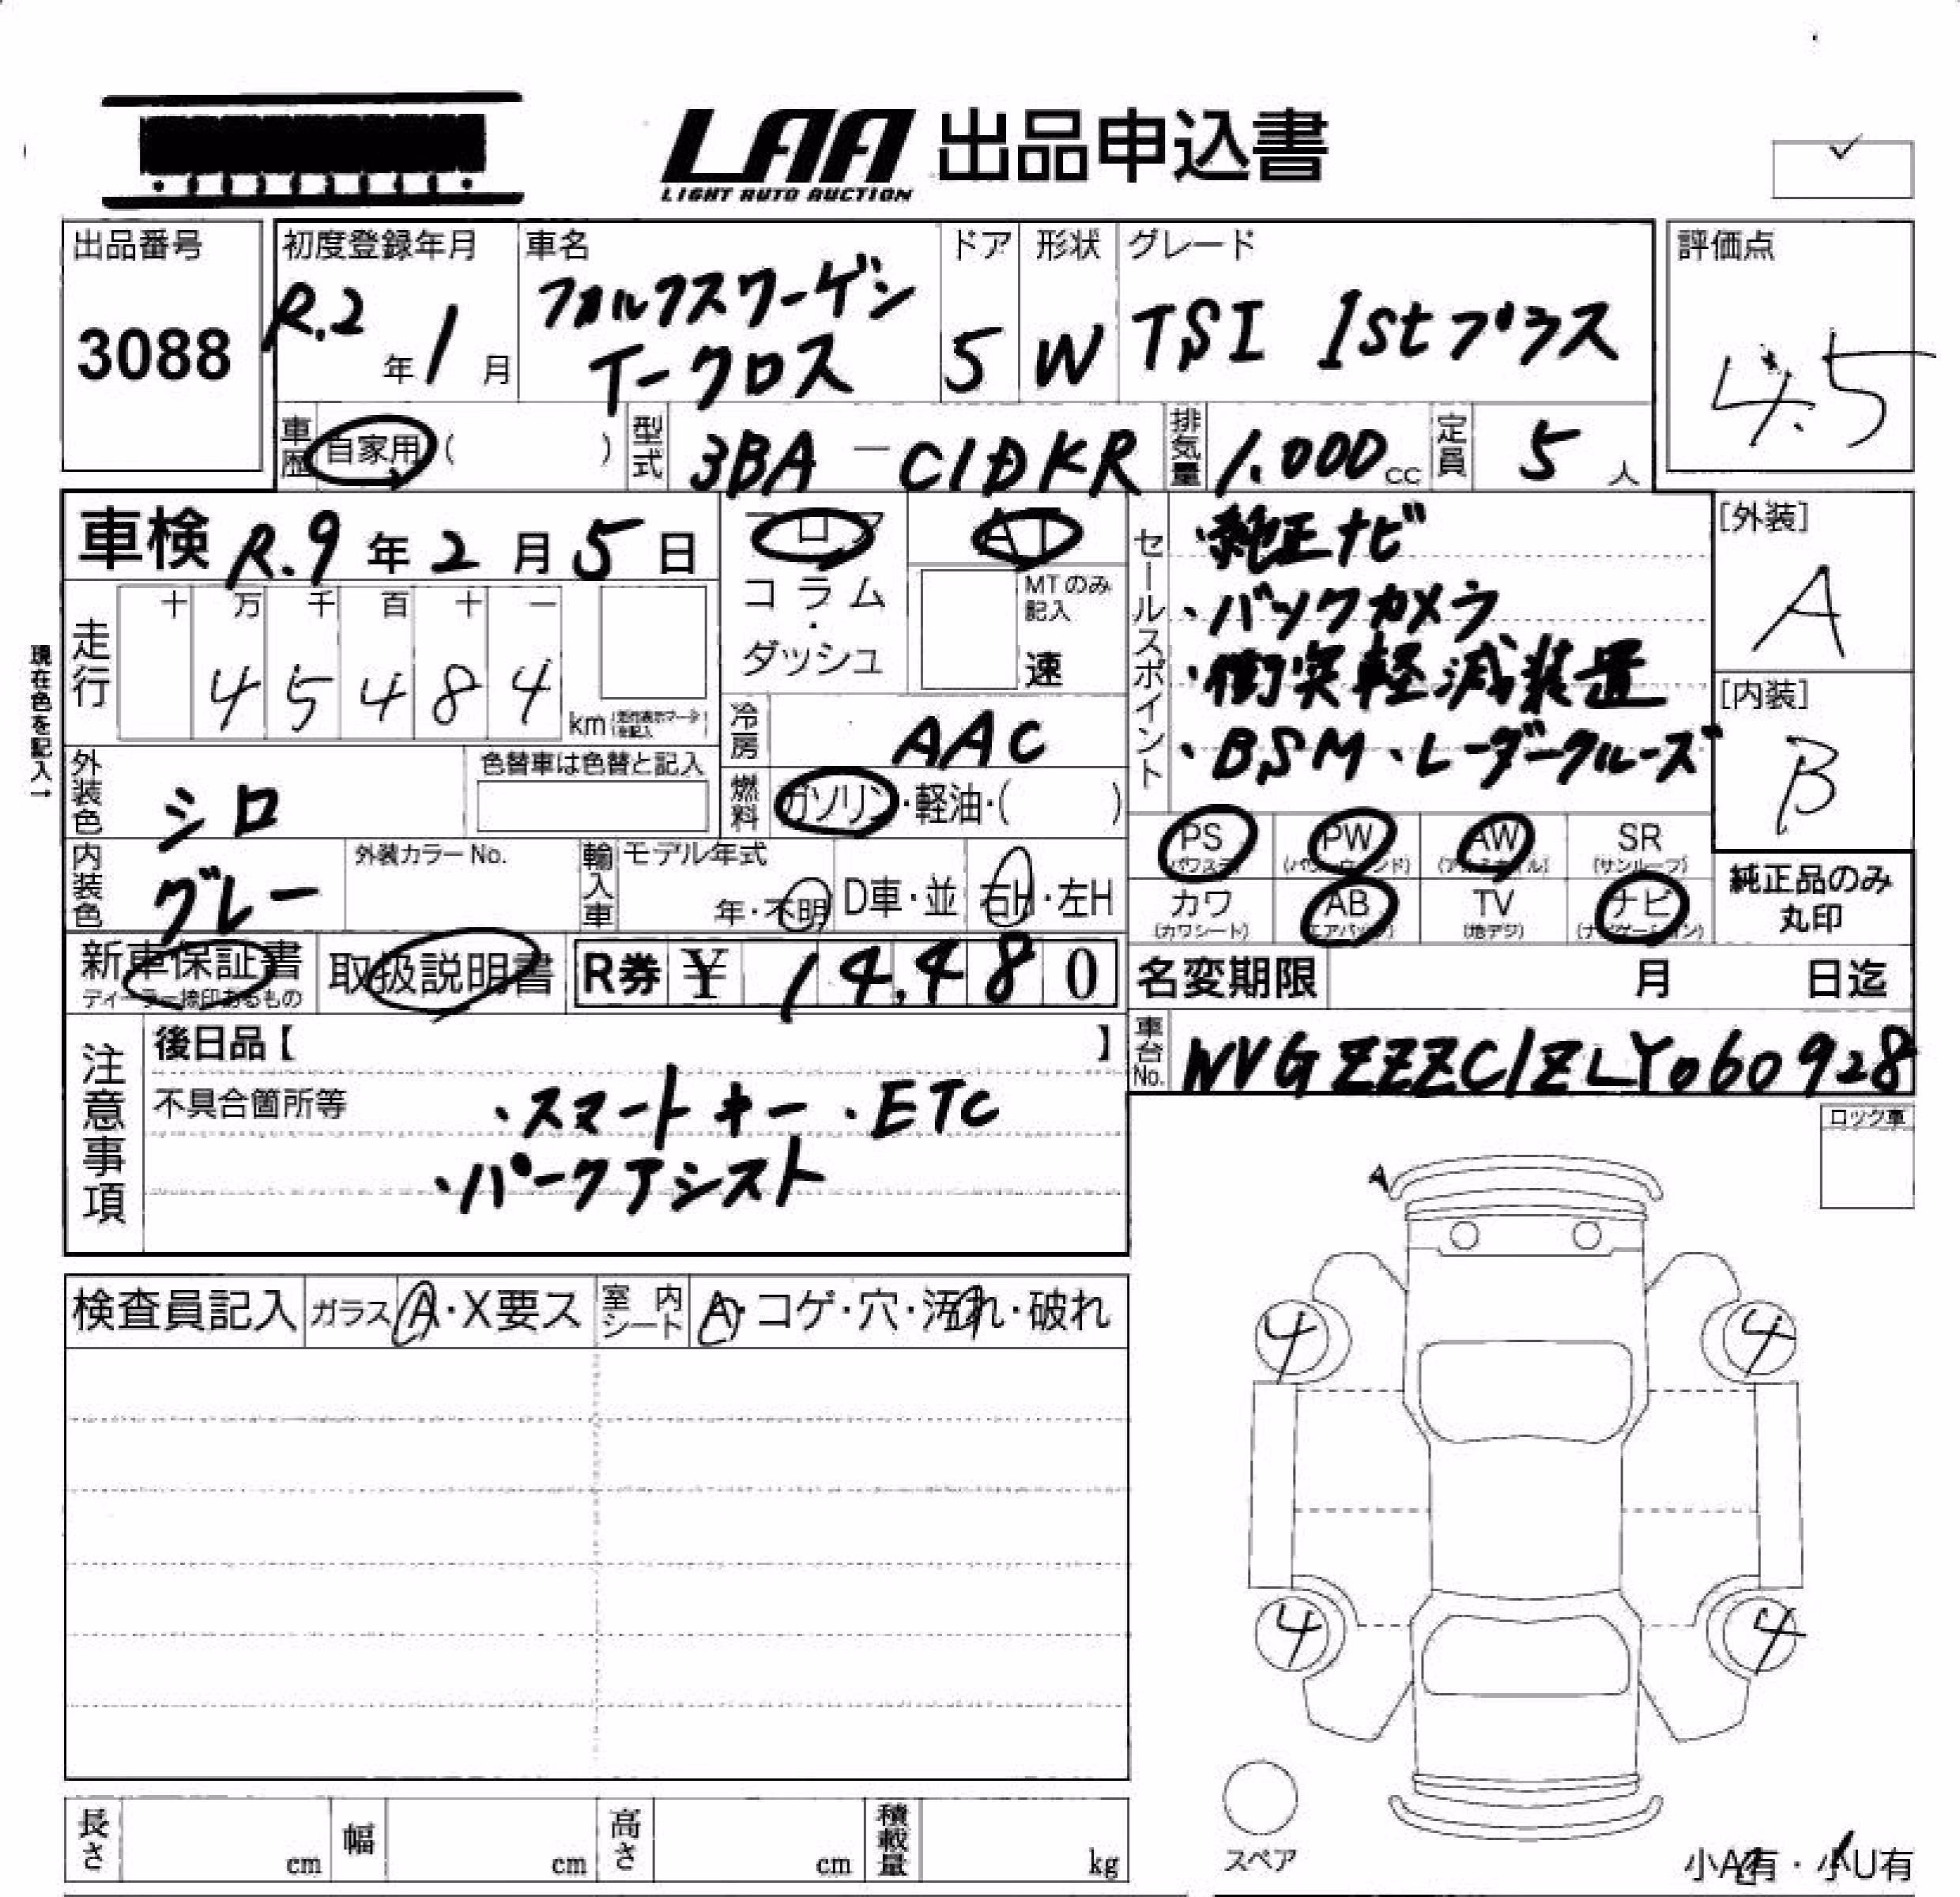 LAA 出品申込書
LIGHT AUTO AUCTION
出品番号
3088
初度登録年月
R.2年1月
車名
フォルクスワーゲン
T-クロス
ドア
5
形状
W
グレード
TSI 1stプラス
評価点
4.5
車歴 自家用( )
型式 3BA-C1DKR
排気量 1.000cc
定員 5人
車検 R.9年2月5日
フロア
コラム・ダッシュ
AT
MTのみ記入
速
セールスポイント
・純正ナビ
・バックカメラ
・衝突軽減装置
・BSM・レーダークルーズ
[外装]
A
[内装]
B
現在色を記入→
走行
十 万 千 百 十 一
4 5 4 8 4 km
冷房 AAC
燃料 ガソリン・軽油・( )
外装色 シロ
色替車は色替と記入
内装色 グレー
外装カラーNo.
輸入車 モデル年式
年・不明
D車・並
右H・左H
PS PW AW SR
(パワステ) (パワーウィンド) (アルミホイル) (サンルーフ)
カワ AB TV ナビ
(カワシート) (エアバッグ) (地デジ) (ナビゲーション)
純正品のみ
丸印
新車保証書
ディーラー捺印あるもの
取扱説明書
R券 ¥ 14,480
名変期限 月 日迄
車台No. WVGZZZC1ZLY060928
注意事項
後日品【 】
不具合箇所等
・スマートキー ・ETC
・パークアシスト
ロック車
A
検査員記入 ガラス A・X要ス 室内シート A・コゲ・穴・汚れ・破れ
4 4
4 4
スペア
長さ cm 幅 cm 高さ cm 積載量 kg
小A有・小U有